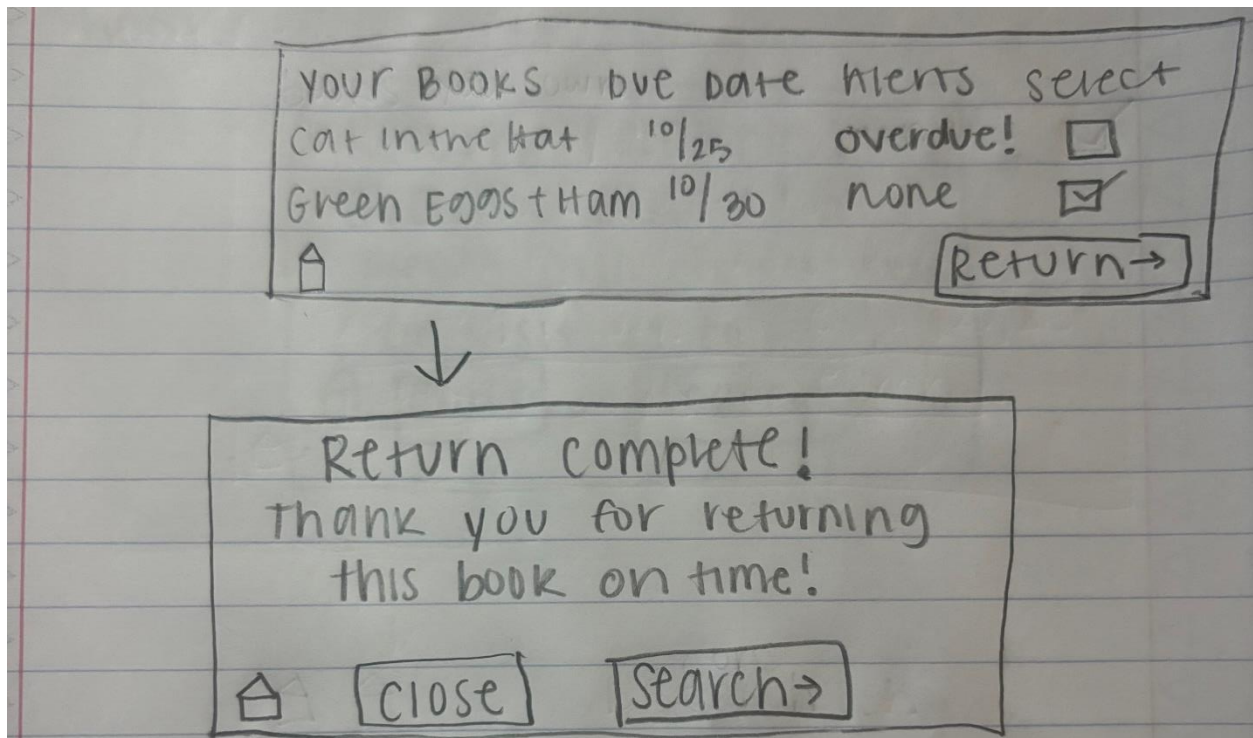 Your Books Due Date Alerts select
Cat in the Hat 10/25 overdue!
Green Eggs + Ham 10/30 none
Return →
Return complete!
Thank you for returning
this book on time!
Close Search →